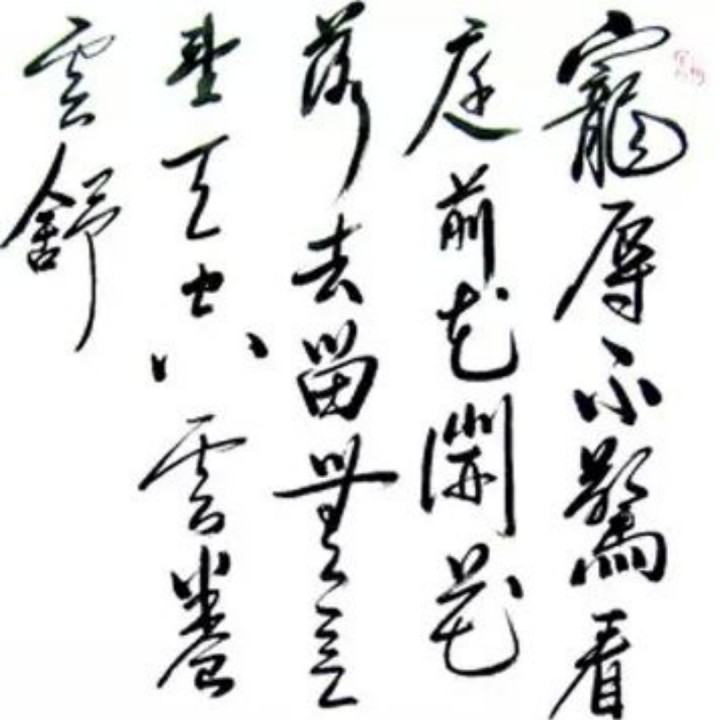 寵辱不驚看
庭前花開花
落去留無意
望天空外雲卷
雲舒